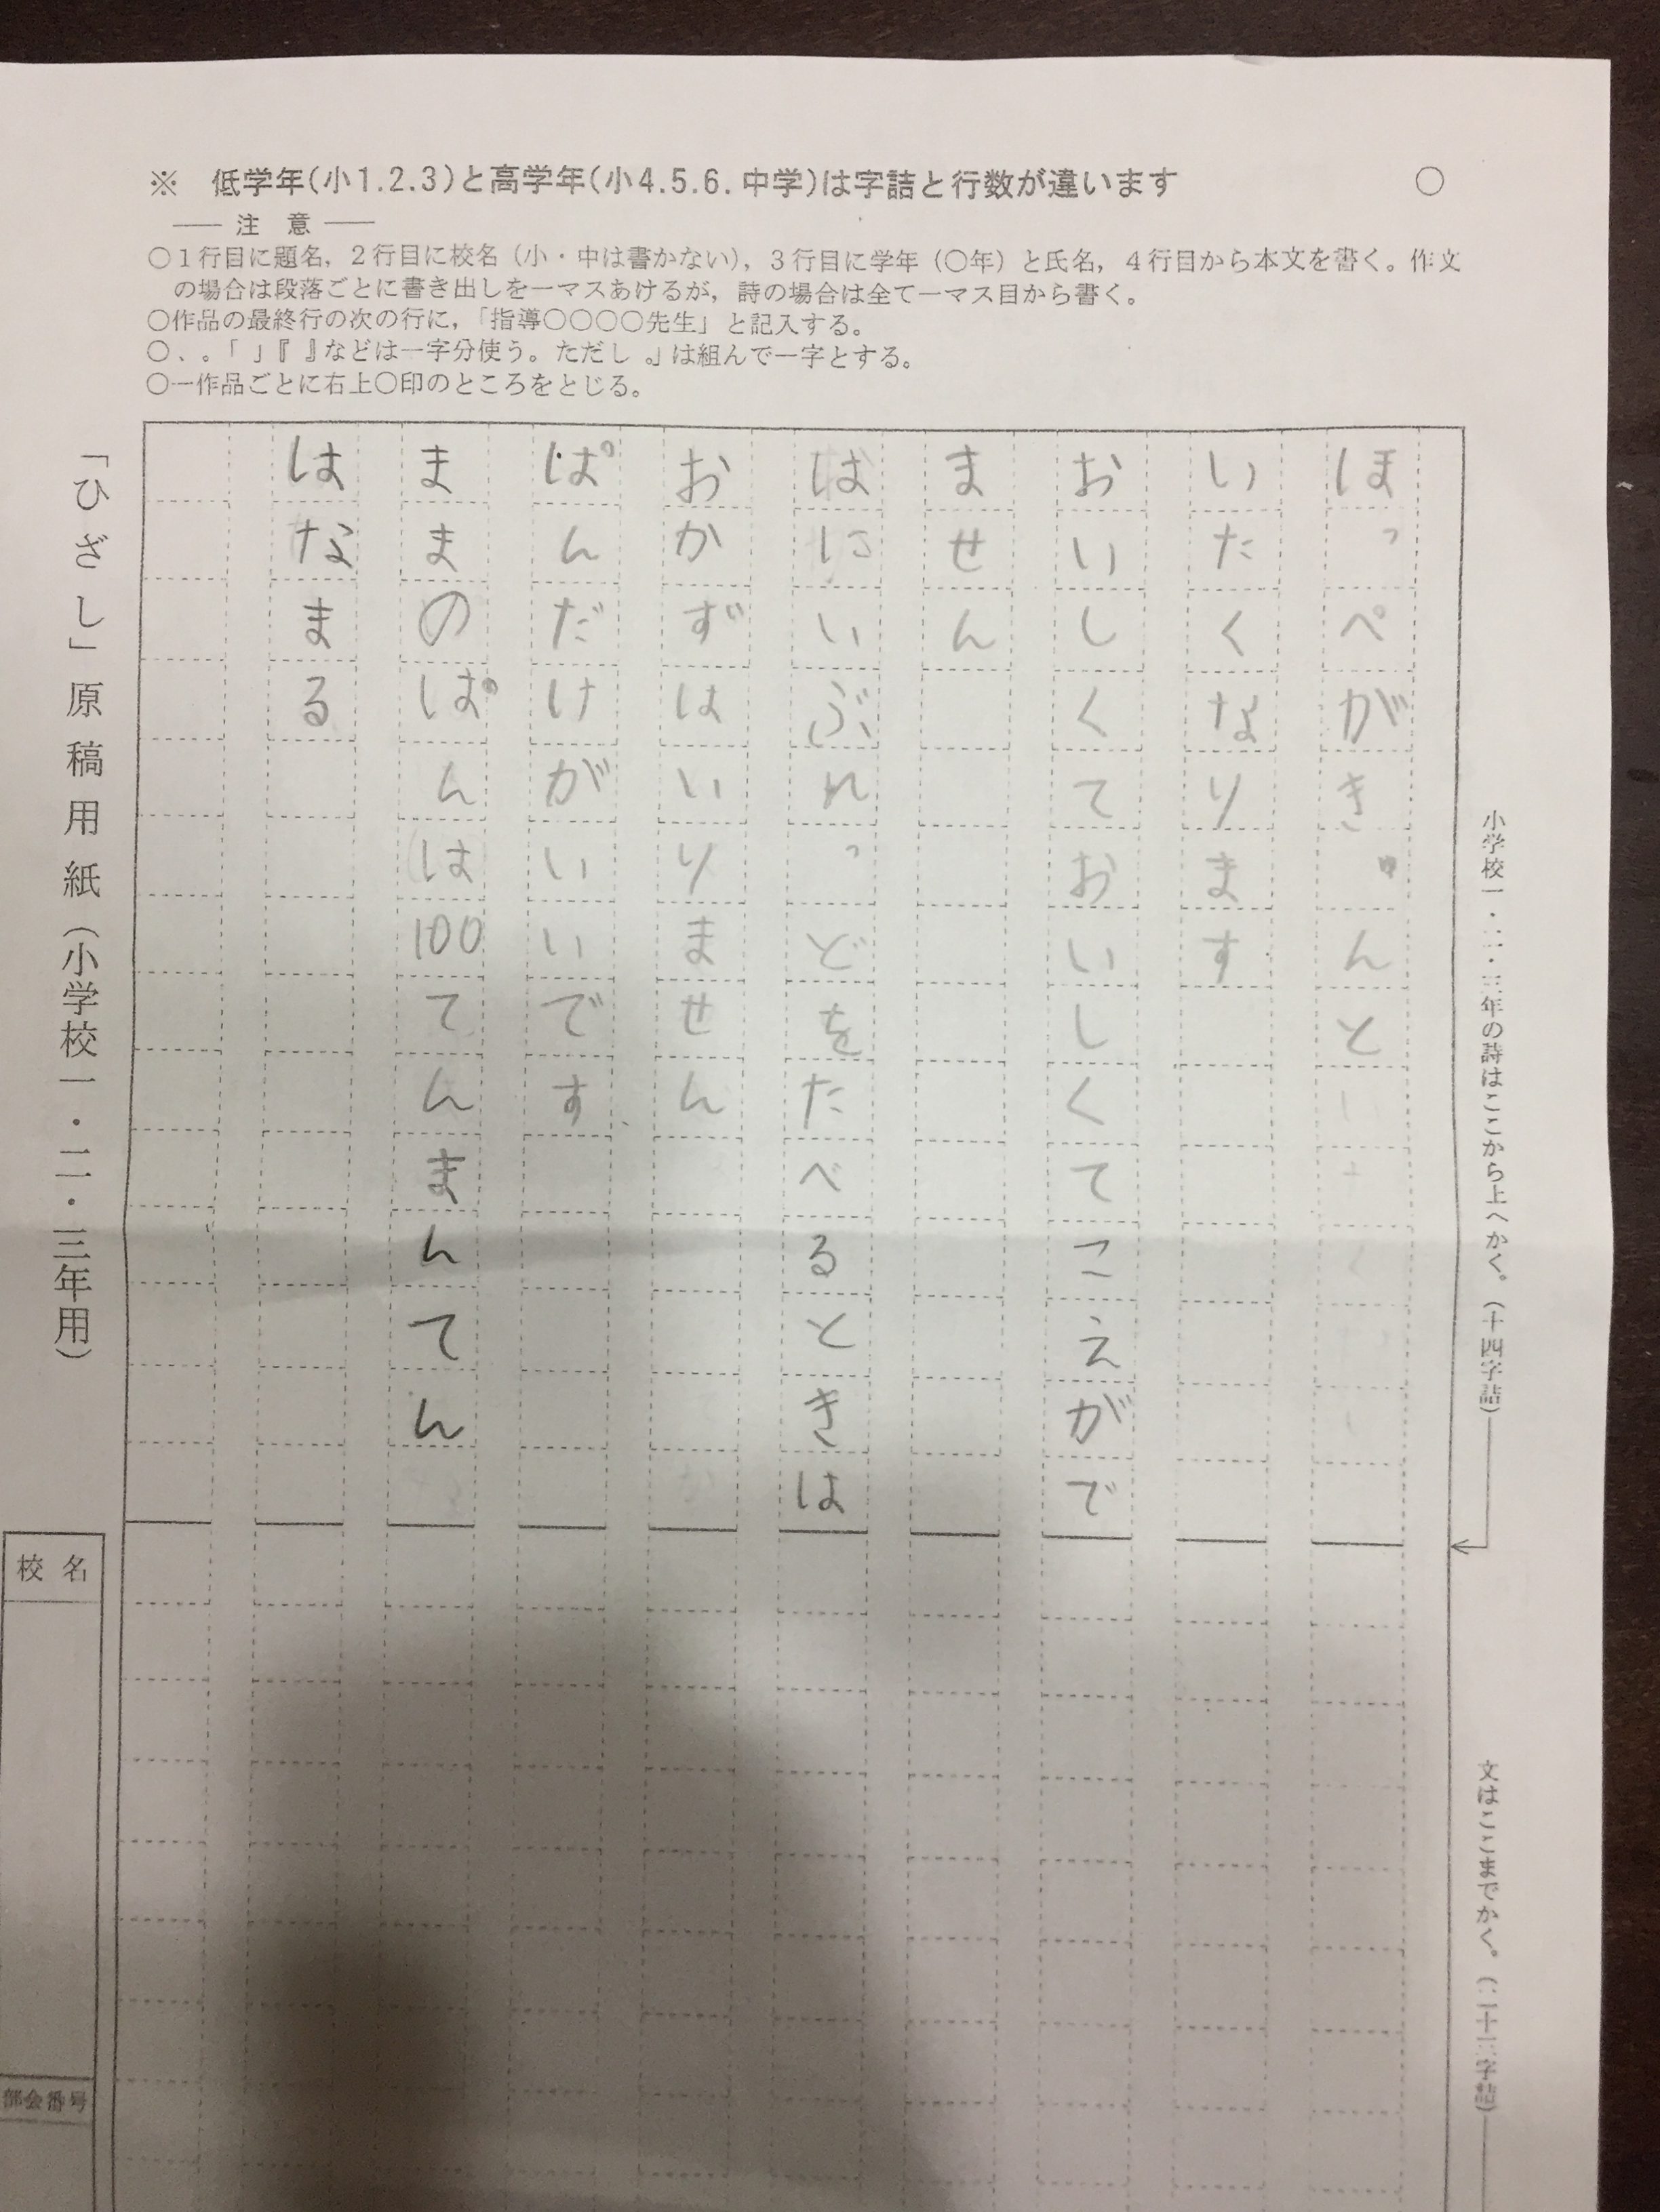 ※ 低学年(小1.2.3)と高学年(小4.5.6.中学)は字詰と行数が違います ○
── 注 意 ──
○1行目に題名，2行目に校名（小・中は書かない），3行目に学年（○年）と氏名，4行目から本文を書く。作文
の場合は段落ごとに書き出しを一マスあけるが，詩の場合は全て一マス目から書く。
○作品の最終行の次の行に，「指導○○○○先生」と記入する。
○、。「 」『 』などは一字分使う。ただし 。」は組んで一字とする。
○一作品ごとに右上○印のところをとじる。
小学校一・二・三年の詩はここから上へかく。（十四字詰）
文はここまでかく。（二十三字詰）
ほっぺがき゛んと
いたくなります
おいしくておいしくてこえがで
ません
ばにいぶれっどをたべるときは
おかずはいりません
ぱんだけがいいです
ままのぱんは100てんまんてん
はなまる
「ひざし」原稿用紙（小学校一・二・三年用）
校名
部会番号